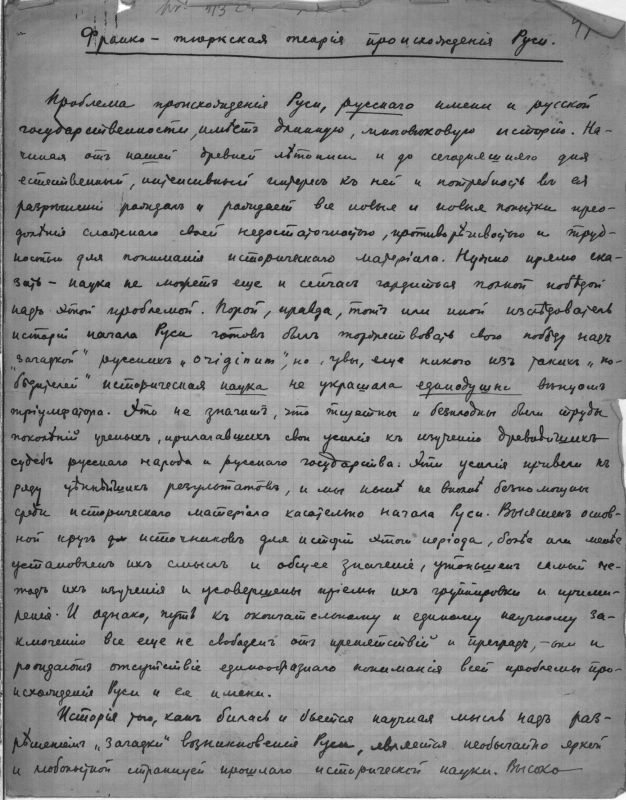 71
Франко-тюркская теорія происхожденія Руси.
Проблема происхожденія Руси, русскаго имени и русской
государственности, имѣетъ длинную, многовѣковую исторію. На-
чиная отъ нашей древней лѣтописи и до сегодняшняго дня
естественный, интенсивный интересъ къ ней и потребность въ ея
разрѣшеніи рождалъ и рождаетъ все новыя и новыя попытки прео-
долѣнія сложнаго своей недостаточностью, противорѣчивостью и труд-
ностью для пониманія историческаго матеріала. Нужно прямо ска-
зать – наука не можетъ еще и сейчасъ гордиться полной побѣдой
надъ этой проблемой. Порой, правда, тотъ или иной изслѣдователь
исторіи начала Руси готовъ былъ торжествовать свою побѣду надъ
"загадкой" русскихъ "originum", но, увы, еще никого изъ такихъ "по-
бѣдителей" историческая наука не украшала единодушно вѣнцомъ
тріумфатора. Это не значитъ, что тщетны и безплодны были труды
поколѣній ученыхъ, прилагавшихъ свои усилія къ изученію древнѣйшихъ
судебъ русскаго народа и русскаго государства. Эти усилія привели къ
ряду цѣннѣйшихъ результатовъ, и мы нынѣ не вполнѣ безпомощны
среди историческаго матеріала касательно начала Руси. Выясненъ основ-
ной кругъ источниковъ для исторіи этого періода, болѣе или менѣе
установленъ ихъ смыслъ и общее значеніе, утонченъ самый ме-
тодъ ихъ изученія и усовершены пріемы ихъ группировки и примѣ-
ренія. И однако, путь къ окончательному и единому научному за-
ключенію все еще не свободенъ отъ препятствій и преградъ, – они и
рождаютъ отсутствіе единообразнаго пониманія всей проблемы про-
исхожденія Руси и ея имени.
Исторія того, какъ билась и бьется научная мысль надъ раз-
рѣшеніемъ "загадки" возникновенія Руси, является необычайно яркой
и любопытной страницей прошлаго исторической науки. Высоко